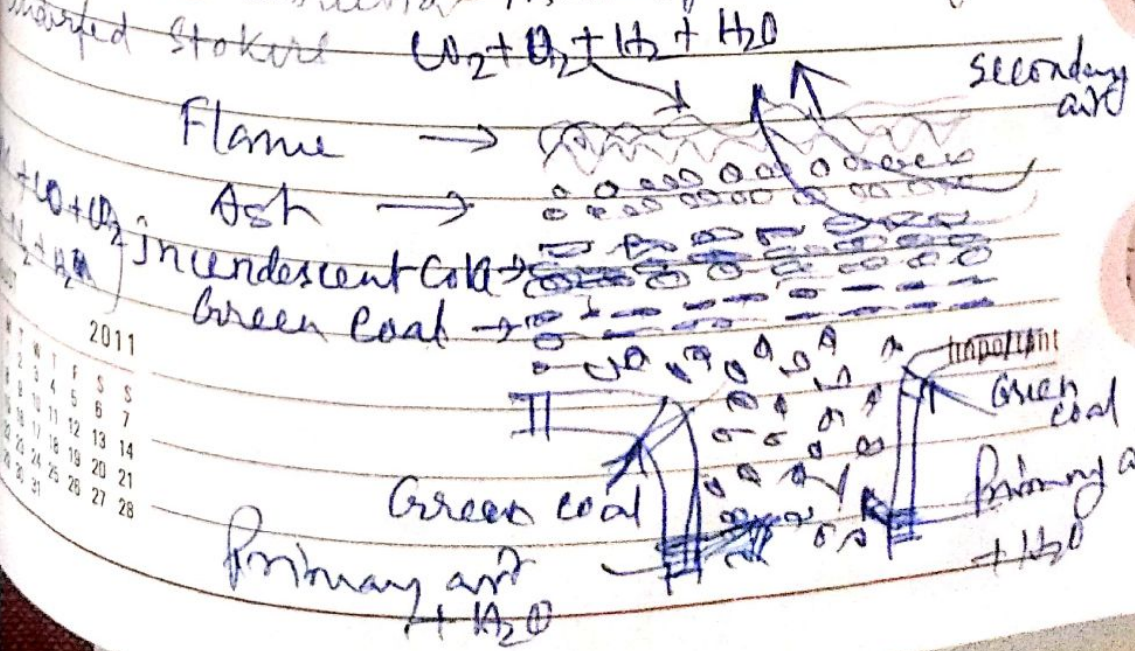 Stokers CO2 + O2 + H2 + H2O
Secondary
air
Flame →
Ash →
+CO+CO2
incendescent Coke →
Green Coal →
2011
M T W T F S S
1 2 3 4 5 6 7
8 9 10 11 12 13 14
15 16 17 18 19 20 21
22 23 24 25 26 27 28
29 30 31
Important
Green
coal
Green coal
Primary
+ H2O
Primary air
+ H2O